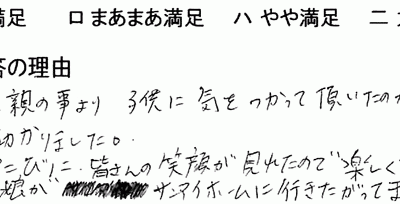 満足　ロ まあまあ満足　ハ やや満足　ニ
答の理由
親の事より 子供に 気をつかって頂いたの
助かりました。
たびに、皆さんの笑顔が見れたので楽しく
娘が サンアイホームに行きたがってま